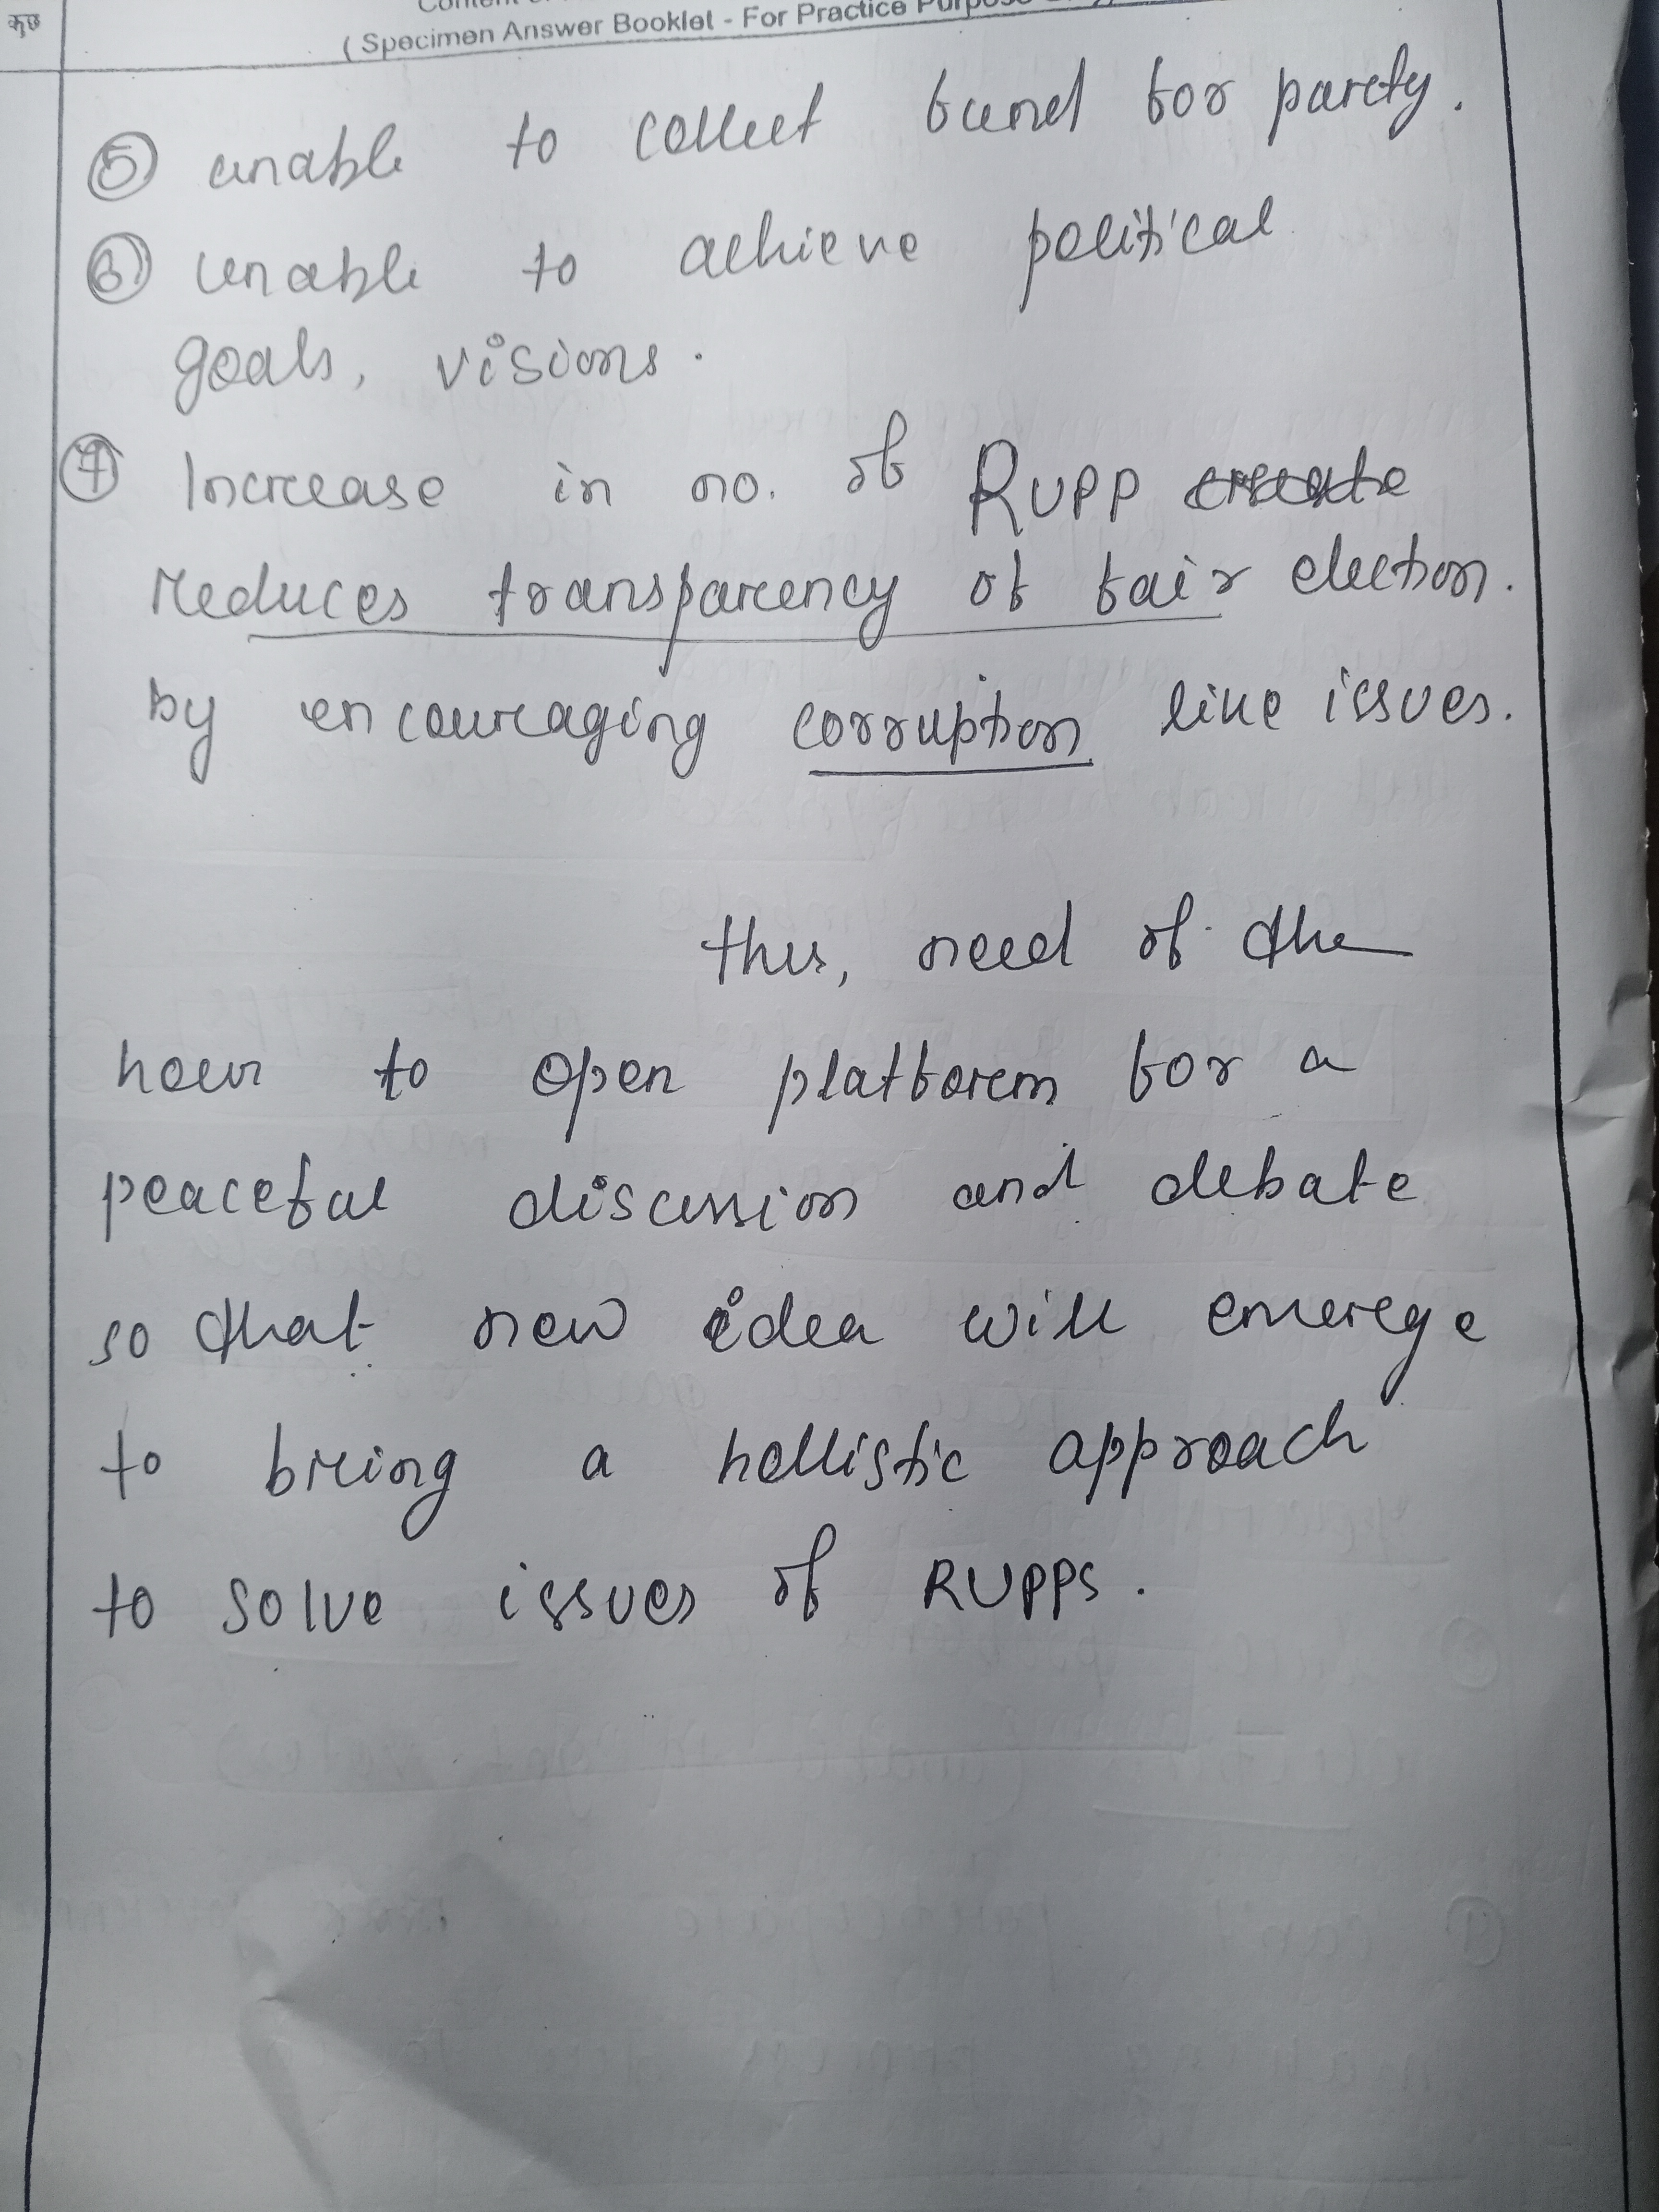 कुछ
( Specimen Answer Booklet - For Practice Purpose
⑤ unable to collect fund for party.
⑥ unable to achieve political
goals, visions.
⑦ Increase in no. of RUPP create
reduces transparency of fair election.
by encouraging corruption like issues.
thus, need of the
hour to open platform for a
peaceful discussion and debate
so that new idea will emerge
to bring a hollistic approach
to solve issues of RUPPS.